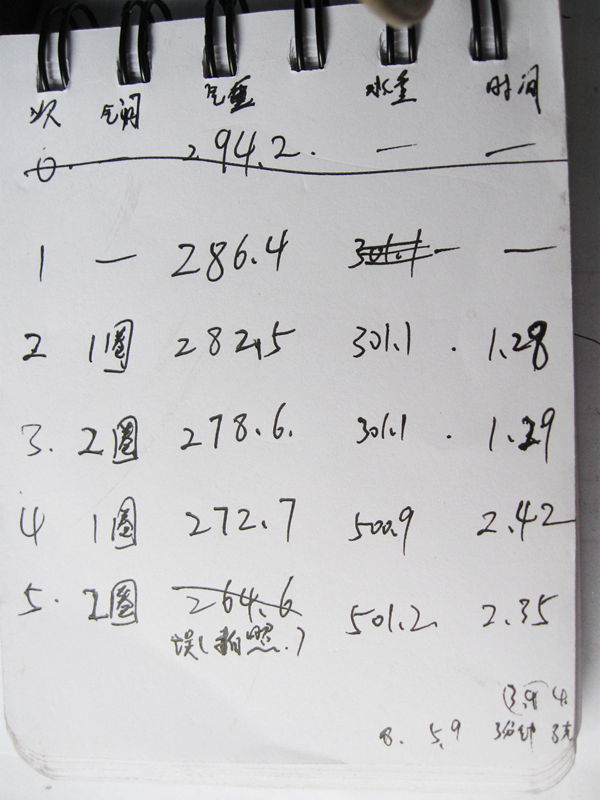 次 气阀 气重 水量 时间
0. — 294.2. — —
1 — 286.4 301.1 — —
2 1圈 282.5 301.1 . 1.28
3. 2圈 278.6. 301.1 . 1.29
4 1圈 272.7 500.9 2.42
5. 2圈 264.6 501.2 2.35
误(拍照.)
(3.9) 4.
8. 5.9 3分钟 3克